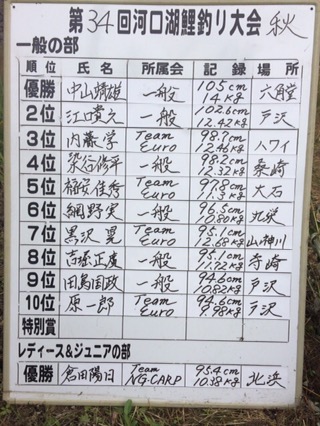 第34回河口湖鯉釣り大会 秋
一般の部
順位 氏名 所属会 記録 場所
優勝 中山靖雄 一般 105cm 14kg 六角堂
2位 江口貴之 一般 102.6cm 12.42kg 戸沢
3位 内藤学 Team Euro 98.7cm 12.46kg ハワイ
4位 染谷修平 一般 98.2cm 12.32kg 桑崎
5位 佳秀 Team Euro 97.8cm 11.3kg 大石
6位 網野実 一般 96.5cm 10.80kg
7位 黒沢晃 Team Euro 95.1cm 12.68kg 山神川
8位 一般 95.1cm 11.72kg 寺崎
9位 田島国政 一般 94.6cm 10.82kg 戸沢
10位 原一郎 Team Euro 94.6cm 9.98kg 戸沢
特別賞
レディース&ジュニアの部
優勝 倉田陽日 Team NG.CARP 95.4cm 10.38kg 北浜